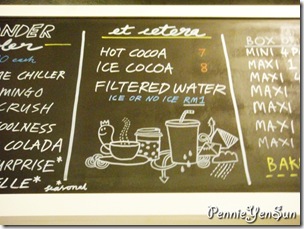 NDER
ler
60 each
E CHILLER
MINGO
CRUSH
OOLNESS
COLADA
RPRISE*
LLE* seasonal
et cetera
HOT COCOA 7
ICE COCOA 8
FILTERED WATER
ICE OR NO ICE RM1
BOX
MINI 4
MAXI 1
MAXI
MAXI
MAXI
MAXI
MAXI
BAK
PennieYenSun